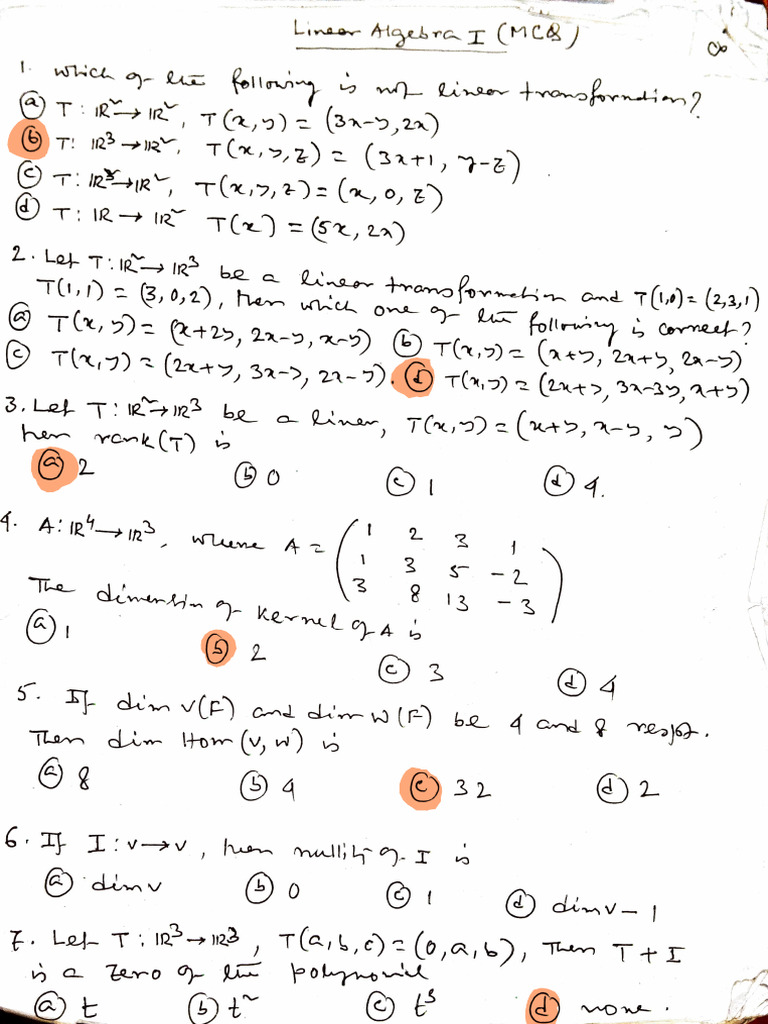 Linear Algebra I (MCQ)
1. Which of the following is not linear transformation?
ⓐ T: ℝ² → ℝ², T(x,y) = (3x-y, 2x)
ⓑ T: ℝ³ → ℝ², T(x,y,z) = (3x+1, y-z)
ⓒ T: ℝ³ → ℝ², T(x,y,z) = (x, 0, z)
ⓓ T: ℝ → ℝ² T(x) = (5x, 2x)
2. Let T: ℝ² → ℝ³ be a linear transformation and T(1,0) = (2,3,1)
T(1,1) = (3,0,2), then which one of the following is correct?
ⓐ T(x,y) = (x+2y, 2x-y, x-y) ⓑ T(x,y) = (x+y, 2x+y, 2x-y)
ⓒ T(x,y) = (2x+y, 3x-y, 2x-y). ⓓ T(x,y) = (2x+y, 3x-3y, x+y)
3. Let T: ℝ² → ℝ³ be a linear, T(x,y) = (x+y, x-y, y)
then rank(T) is
ⓐ 2 ⓑ 0 ⓒ 1 ⓓ 4.
4. A: ℝ⁴ → ℝ³, where A = (1 2 3 1
1 3 5 -2
3 8 13 -3)
The dimension of kernel of A is
ⓐ 1 ⓑ 2 ⓒ 3 ⓓ 4
5. If dim V(F) and dim W(F) be 4 and 8 resp.
Then dim Hom(V, W) is
ⓐ 8 ⓑ 4 ⓒ 32 ⓓ 2
6. If I: V → V, then nullity of I is
ⓐ dim V ⓑ 0 ⓒ 1 ⓓ dim V - 1
7. Let T: ℝ³ → ℝ³, T(a,b,c) = (0,a,b), Then T + I
is a zero of the polynomial
ⓐ t ⓑ t² ⓒ t³ ⓓ none.